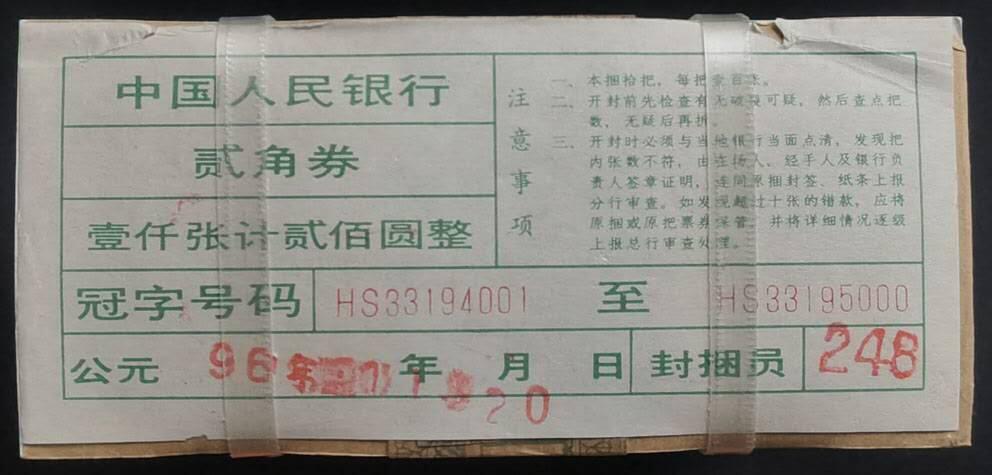 中国人民银行
贰角券
壹仟张计贰佰圆整
注意事项
一、本捆拾把，每把壹百张。
二、开封前先检查有无破裂可疑，然后查点把
数，无疑后再拆。
三、开封时必须与当地银行当面点清，发现把
内张数不符，由在场人、经手人及银行负
责人签章证明，连同原捆封签、纸条上报
分行审查。如发现超过十张的错款，应将
原捆或原把票券保管，并将详细情况逐级
上报总行审查处理。
冠字号码 HS33194001 至 HS33195000
公元 96年 年 月 日 封捆员 248
20